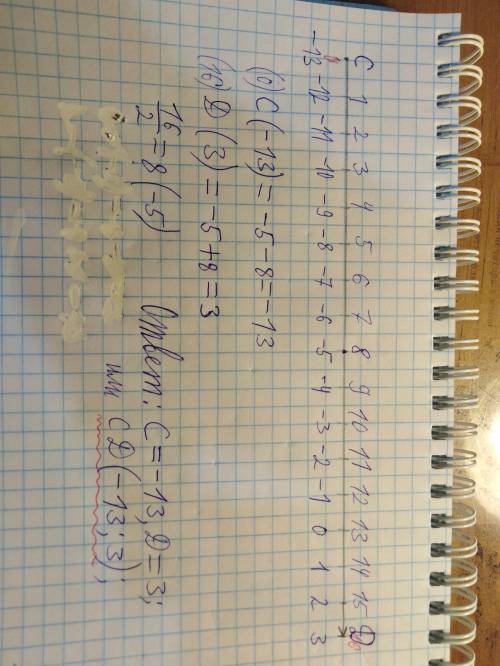 C 1 2 3 4 5 6 7 8 9 10 11 12 13 14 15 D
-13 -12 -11 -10 -9 -8 -7 -6 -5 -4 -3 -2 -1 0 1 2 3
(0) C (-13) = -5-8=-13
(16) D (3) = -5+8=3
16/2 = 8 (-5)
Ответ: C=-13, D=3;
или CD (-13; 3);